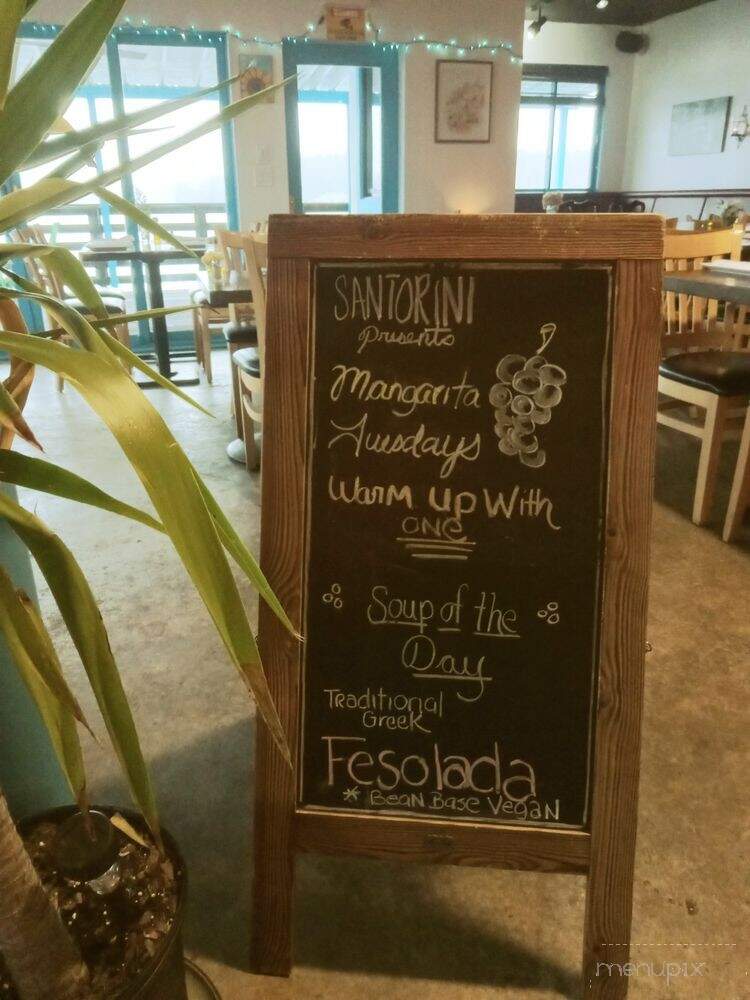 SANTORINI
presents
Mangarita
Tuesdays
Warm up with
one
Soup of the
Day
Traditional
Greek
Fesolada
* Bean Base Vegan
menupix